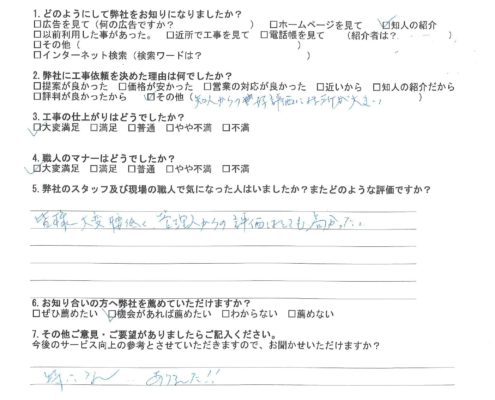 1. どのようにして弊社をお知りになりましたか？
□広告を見て（何の広告ですか？　　　　　　　）　□ホームページを見て　☑知人の紹介
□以前利用した事があった。　□近所で工事を見て　□電話帳を見て　（紹介者は？　　　　　）
□その他（　　　　　　　　　　）
□インターネット検索（検索ワードは？　　　　　　　　　　　　　）
2. 弊社に工事依頼を決めた理由は何でしたか？
□提案が良かった　□価格が安かった　□営業の対応が良かった　□近いから　□知人の紹介だから
□評判が良かったから　☑その他（知人からの　評価に　　　）
3. 工事の仕上がりはどうでしたか？
☑大変満足　□満足　□普通　□やや不満　□不満
4. 職人のマナーはどうでしたか？
☑大変満足　□満足　□普通　□やや不満　□不満
5. 弊社のスタッフ及び現場の職人で気になった人はいましたか？またどのような評価ですか？
皆様　大変腰低く、管理人からの評価はとても高かった。
6. お知り合いの方へ弊社を薦めていただけますか？
□ぜひ薦めたい　☑機会があれば薦めたい　□わからない　□薦めない
7. その他ご意見・ご要望がありましたらご記入ください。
今後のサービス向上の参考とさせていただきますので、お聞かせいただけますか？
特に